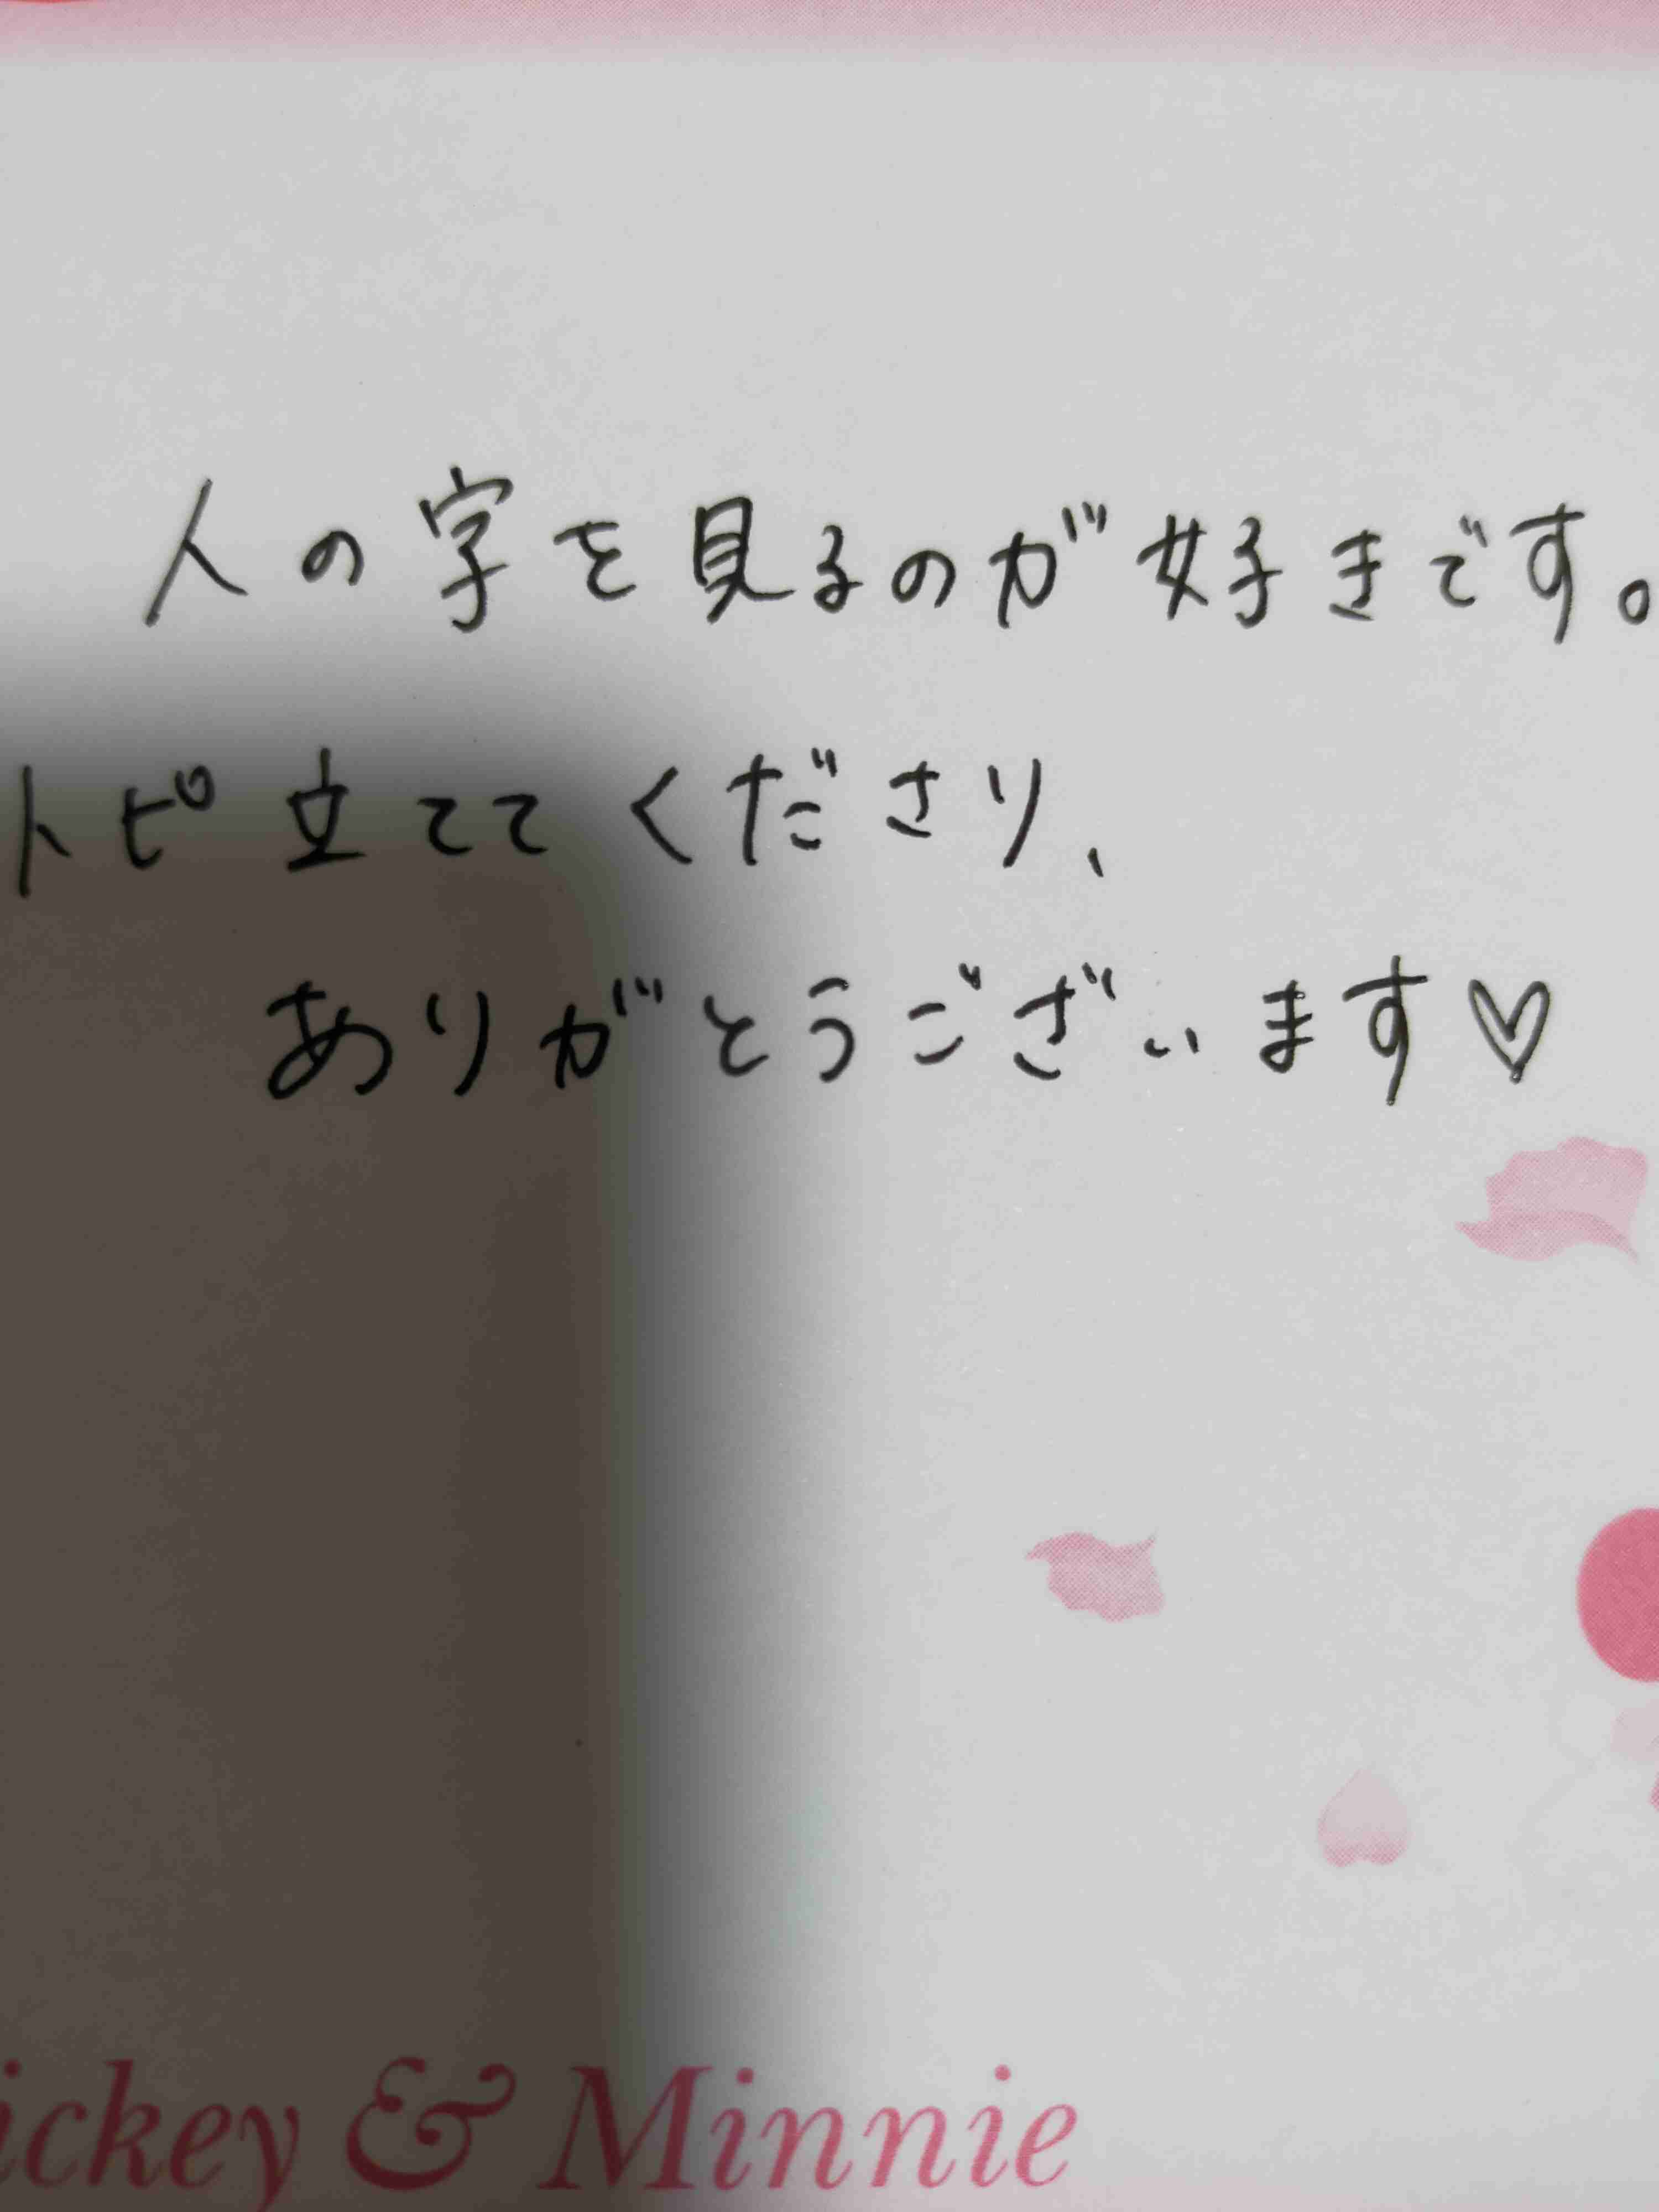 人の字を見るのが好きです。
トピ立ててくださり、
ありがとうございます♡
ickey & Minnie